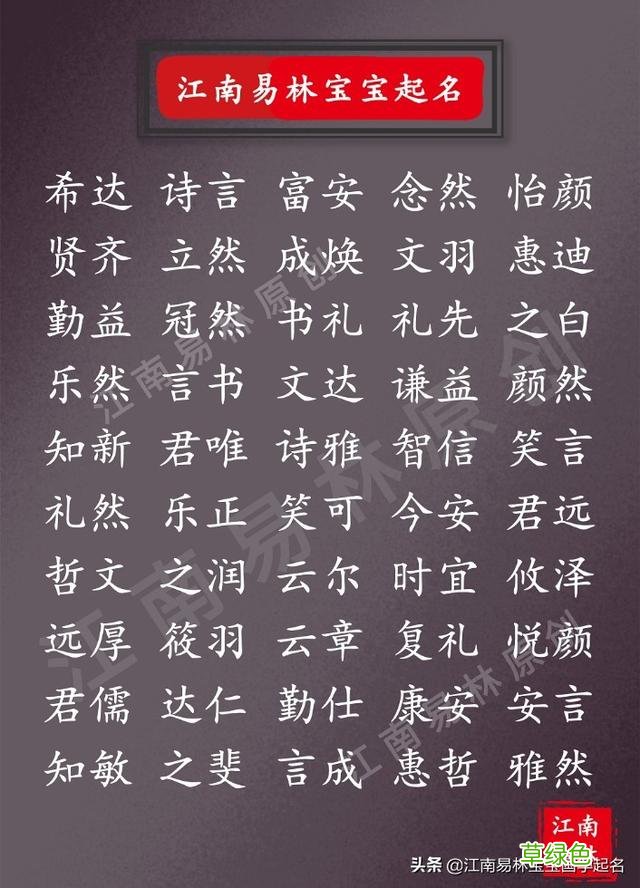 江南易林宝宝起名
希达 诗言 富安 念然 怡颜
贤齐 立然 成焕 文羽 惠迪
勤益 冠然 书礼 礼先 之白
乐然 言书 文达 谦益 颜然
知新 君唯 诗雅 智信 笑言
礼然 乐正 笑可 今安 君远
哲文 之润 云尔 时宜 攸泽
远厚 筱羽 云章 复礼 悦颜
君儒 达仁 勤仕 康安 安言
知敏 之斐 言成 惠哲 雅然
江南易林原创
江南易林原创
江南易林原创
江南
草绿色
头条 @江南易林宝宝国学起名